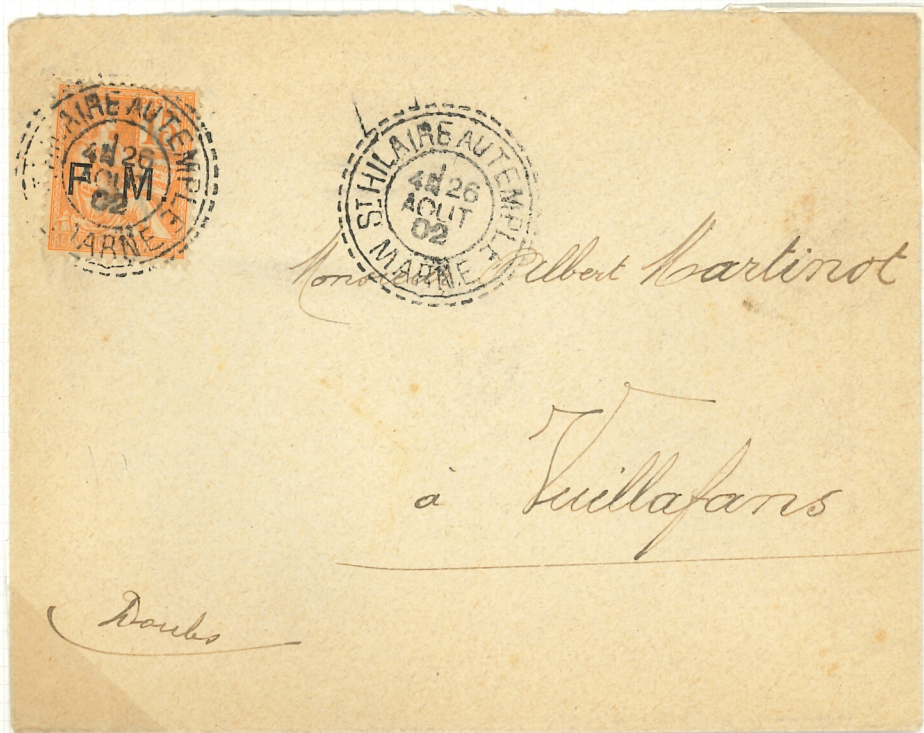 F M
ST HILAIRE AU TEMPLE
4E 26
AOUT
02
MARNE
ST HILAIRE AU TEMPLE
4E 26
AOUT
02
MARNE
Monsieur Albert Martinot
à Vuillafans
Doubs